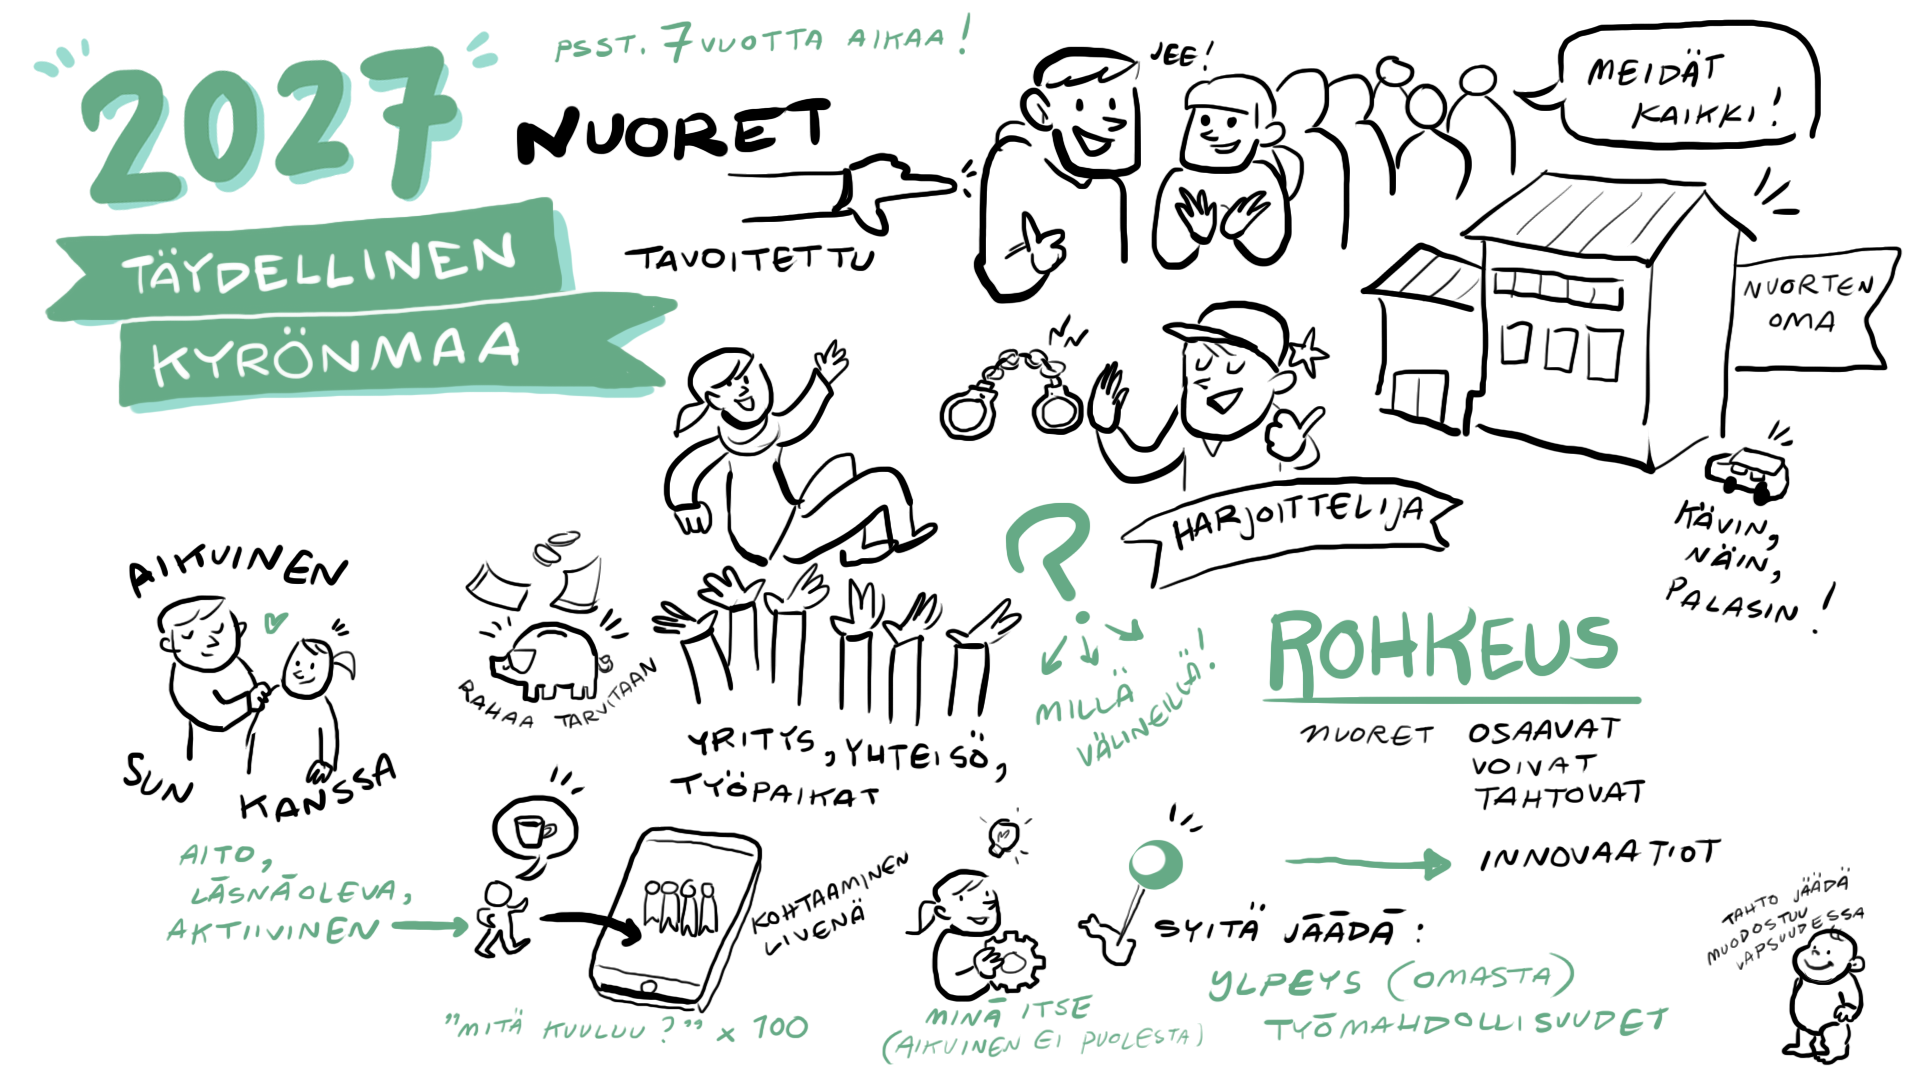 2027
TÄYDELLINEN
KYRÖNMAA
PSST. 7 VUOTTA AIKAA!
NUORET
TAVOITETTU
JEE!
MEIDÄT
KAIKKI!
NUORTEN
OMA
KÄVIN,
NÄIN,
PALASIN!
HARJOITTELIJA
AIKUINEN
SUN KANSSA
AITO,
LÄSNÄOLEVA,
AKTIIVINEN
RAHAA TARVITAAN
YRITYS, YHTEISÖ,
TYÖPAIKAT
?
MILLÄ
VÄLINEILLÄ!
ROHKEUS
NUORET OSAAVAT
VOIVAT
TAHTOVAT
INNOVAATIOT
KOHTAAMINEN
LIVENÄ
"MITÄ KUULUU?" x 100
MINÄ ITSE
(AIKUINEN EI PUOLESTA)
SYITÄ JÄÄDÄ:
YLPEYS (OMASTA)
TYÖMAHDOLLISUUDET
TAHTO JÄÄDÄ
MUODOSTUU
LAPSUUDESSA